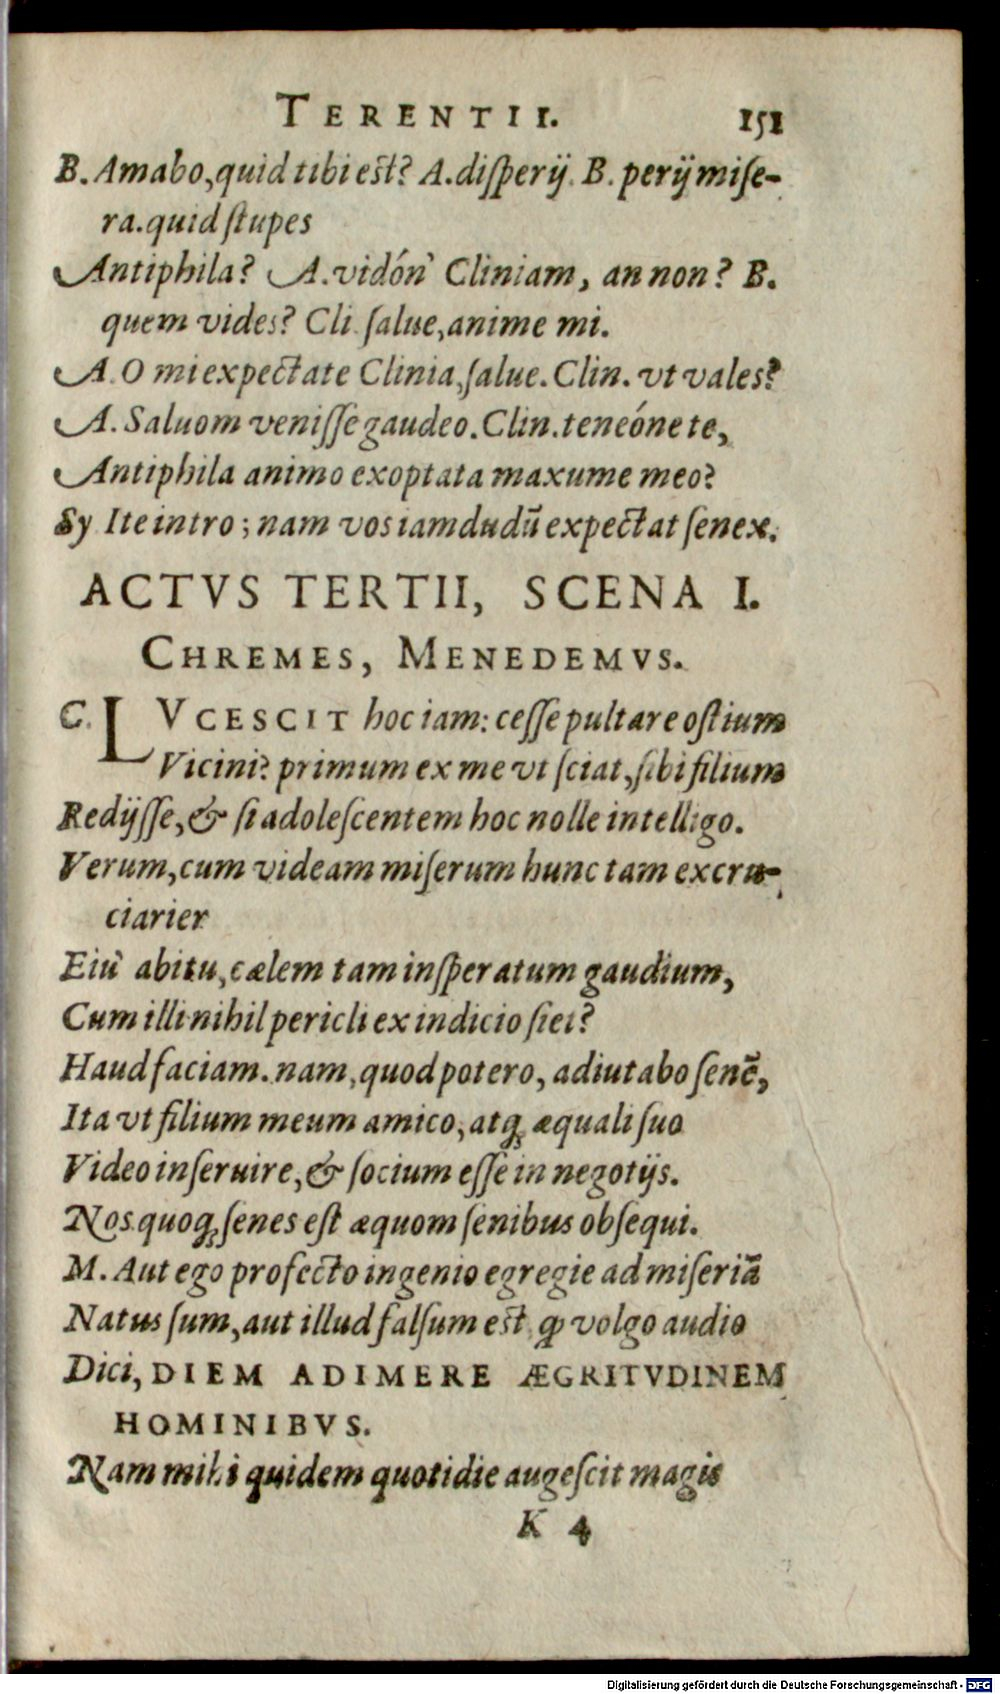 TERENTII. 151
B. Amabo, quid tibi est? A. disperij. B. perij mise-
ra. quid stupes
Antiphila? A. vidén' Cliniam, an non? B.
quem vides? Cli. salue, anime mi.
A. O mi expectate Clinia, salue. Clin. vt vales?
A. Saluom venisse gaudeo. Clin. teneóne te,
Antiphila animo exoptata maxume meo?
Sy Ite intro; nam vos iamdudū expectat senex.
ACTVS TERTII, SCENA I.
CHREMES, MENEDEMVS.
C. LVCESCIT hoc iam: cesse pultare ostium
Vicini? primum ex me vt sciat, sibi filium
Redijsse, & si adolescentem hoc nolle intelligo.
Verum, cum videam miserum hunc tam excru-
ciarier
Eiu' abitu, cælem tam insperatum gaudium,
Cum illi nihil pericli ex indicio siet?
Haud faciam. nam, quod potero, adiutabo senē,
Ita vt filium meum amico, atq; æquali suo
Video inseruire, & socium esse in negotijs.
Nos quoq; senes est æquom senibus obsequi.
M. Aut ego profecto ingenio egregie ad miseriā
Natus sum, aut illud falsum est, ꝙ volgo audio
Dici, DIEM ADIMERE ÆGRITVDINEM
HOMINIBVS.
Nam mihi quidem quotidie augescit magis
K 4
Digitalisierung gefördert durch die Deutsche Forschungsgemeinschaft - DFG